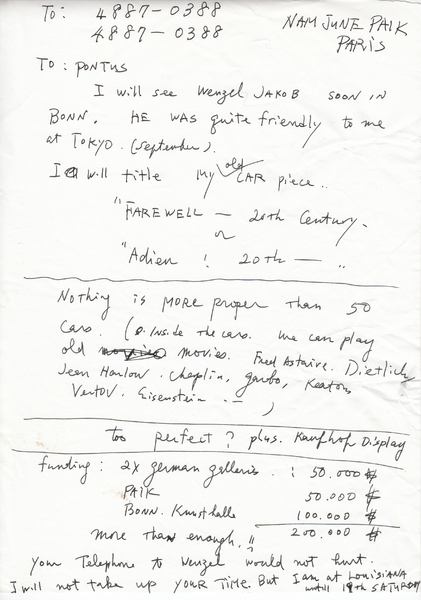 To: 4887-0388
4887-0388
NAM JUNE PAIK
PARIS
To: PONTUS
I will see Wenzel JAKOB SOON IN
BONN. HE WAS quite friendly to me
at TOKYO. (September).
I will title my old CAR piece..
"FAREWELL — 20th Century.
or
"Adieu ! 20th — "
Nothing is MORE proper than 50
cars. ( Inside the cars. we can play
old movies. Fred Astaire. Dietlich
Jean Harlow. Chaplin, garbo, Keaton
Vertov. Eisenstein. -- )
too perfect? plus. Kaufhof Display
funding: 2x german galleries. : 50.000 $
PAIK 50.000 $
BONN. Kunsthalle 100.000 $
more than enough.!! 200.000 $
your Telephone to Wenzel would not hurt.
I will not take up YOUR TIME. But I am at LOUISIANA
until 19th SATURDAY